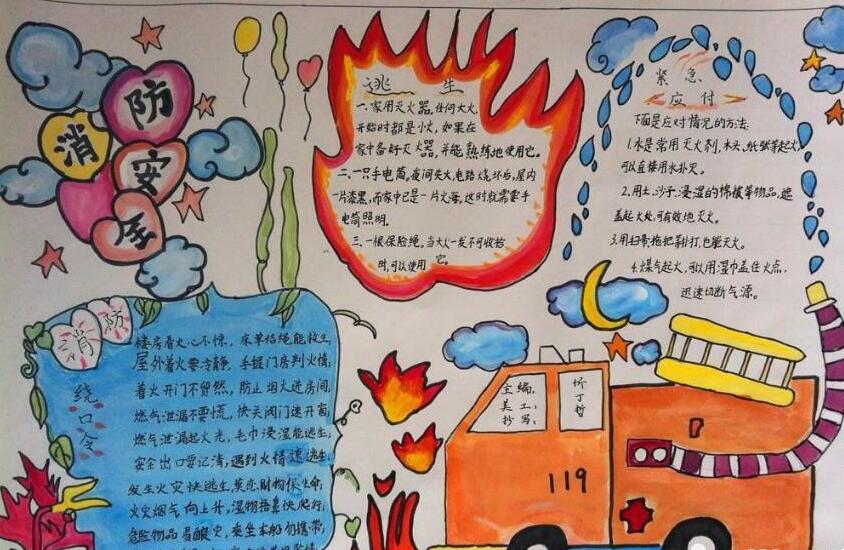 消防安全
逃生
一、家用灭火器，任何大火，
开始时都是小火，如果在
家中备好灭火器，并能熟练地使用它。
二、一只手电筒。夜间失火，电路烧坏后，屋内
一片漆黑，而家中已是一片火海，这时就需要手
电筒照明。
三、一根保险绳。当大火一发不可收拾
时，可以使用它。
紧急
应付
下面是应对情况的方法：
1.水是常用灭火剂，木头、纸张等起火，
可以直接用水扑灭。
2.用土、沙子、浸湿的棉被等物品，遮
盖起火处，可有效地灭火。
3.用扫帚、拖把等扑打，也能灭火。
4.煤气起火，可以用湿巾盖住火点，
迅速切断气源。
消防
绕口令
楼房着火心不惊，床单结绳能救生，
屋外着火要冷静，手摸门房判火情；
着火开门不贸然，防止烟火进房间，
燃气泄漏不要慌，快关阀门速开窗；
燃气泄漏起火光，毛巾浸湿能逃生；
安全出口要记清，遇到火情速逃生；
发生火灾快逃生，莫恋财物保生命；
火灾烟气向上升，湿物捂鼻快爬行；
危险物品易酿灾，乘坐车船勿携带；
主编：
美工：
抄写：
119